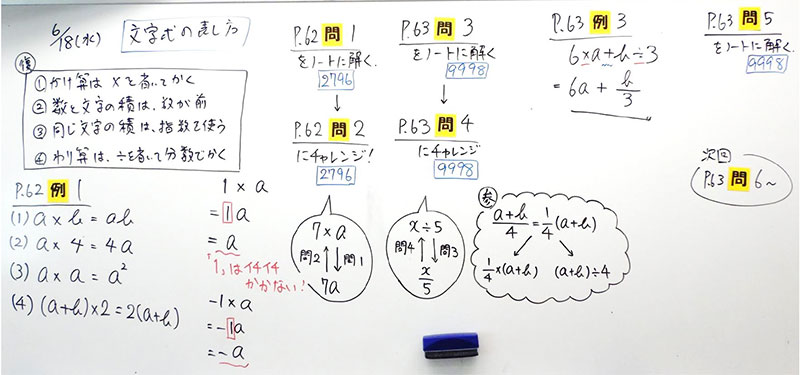 6/18(水) 文字式の表し方
復
①かけ算は×を省いてかく
②数と文字の積は、数が前
③同じ文字の積は、指数を使う
④わり算は、÷を省いて分数でかく
P.62 例 1
(1) a×b=ab
(2) a×4=4a
(3) a×a=a²
(4) (a+b)×2=2(a+b)
1×a
=1a
=a
↑1,はイチイチ
かかない!
-1×a
=-1a
=-a
P.62 問 1
をノートに解く.
2796
↓
P.62 問 2
にチャレンジ!
2796
7×a
問2↑↓問1
7a
P.63 問 3
をノートに解く.
9998
↓
P.63 問 4
にチャレンジ
9998
x÷5
問4↑↓問3
x/5
P.63 例 3
6×a+b÷3
=6a+b/3
参
(a+b)/4=1/4(a+b)
1/4×(a+b) (a+b)÷4
P.63 問 5
をノートに解く.
9998
次回
P.63 問 6〜